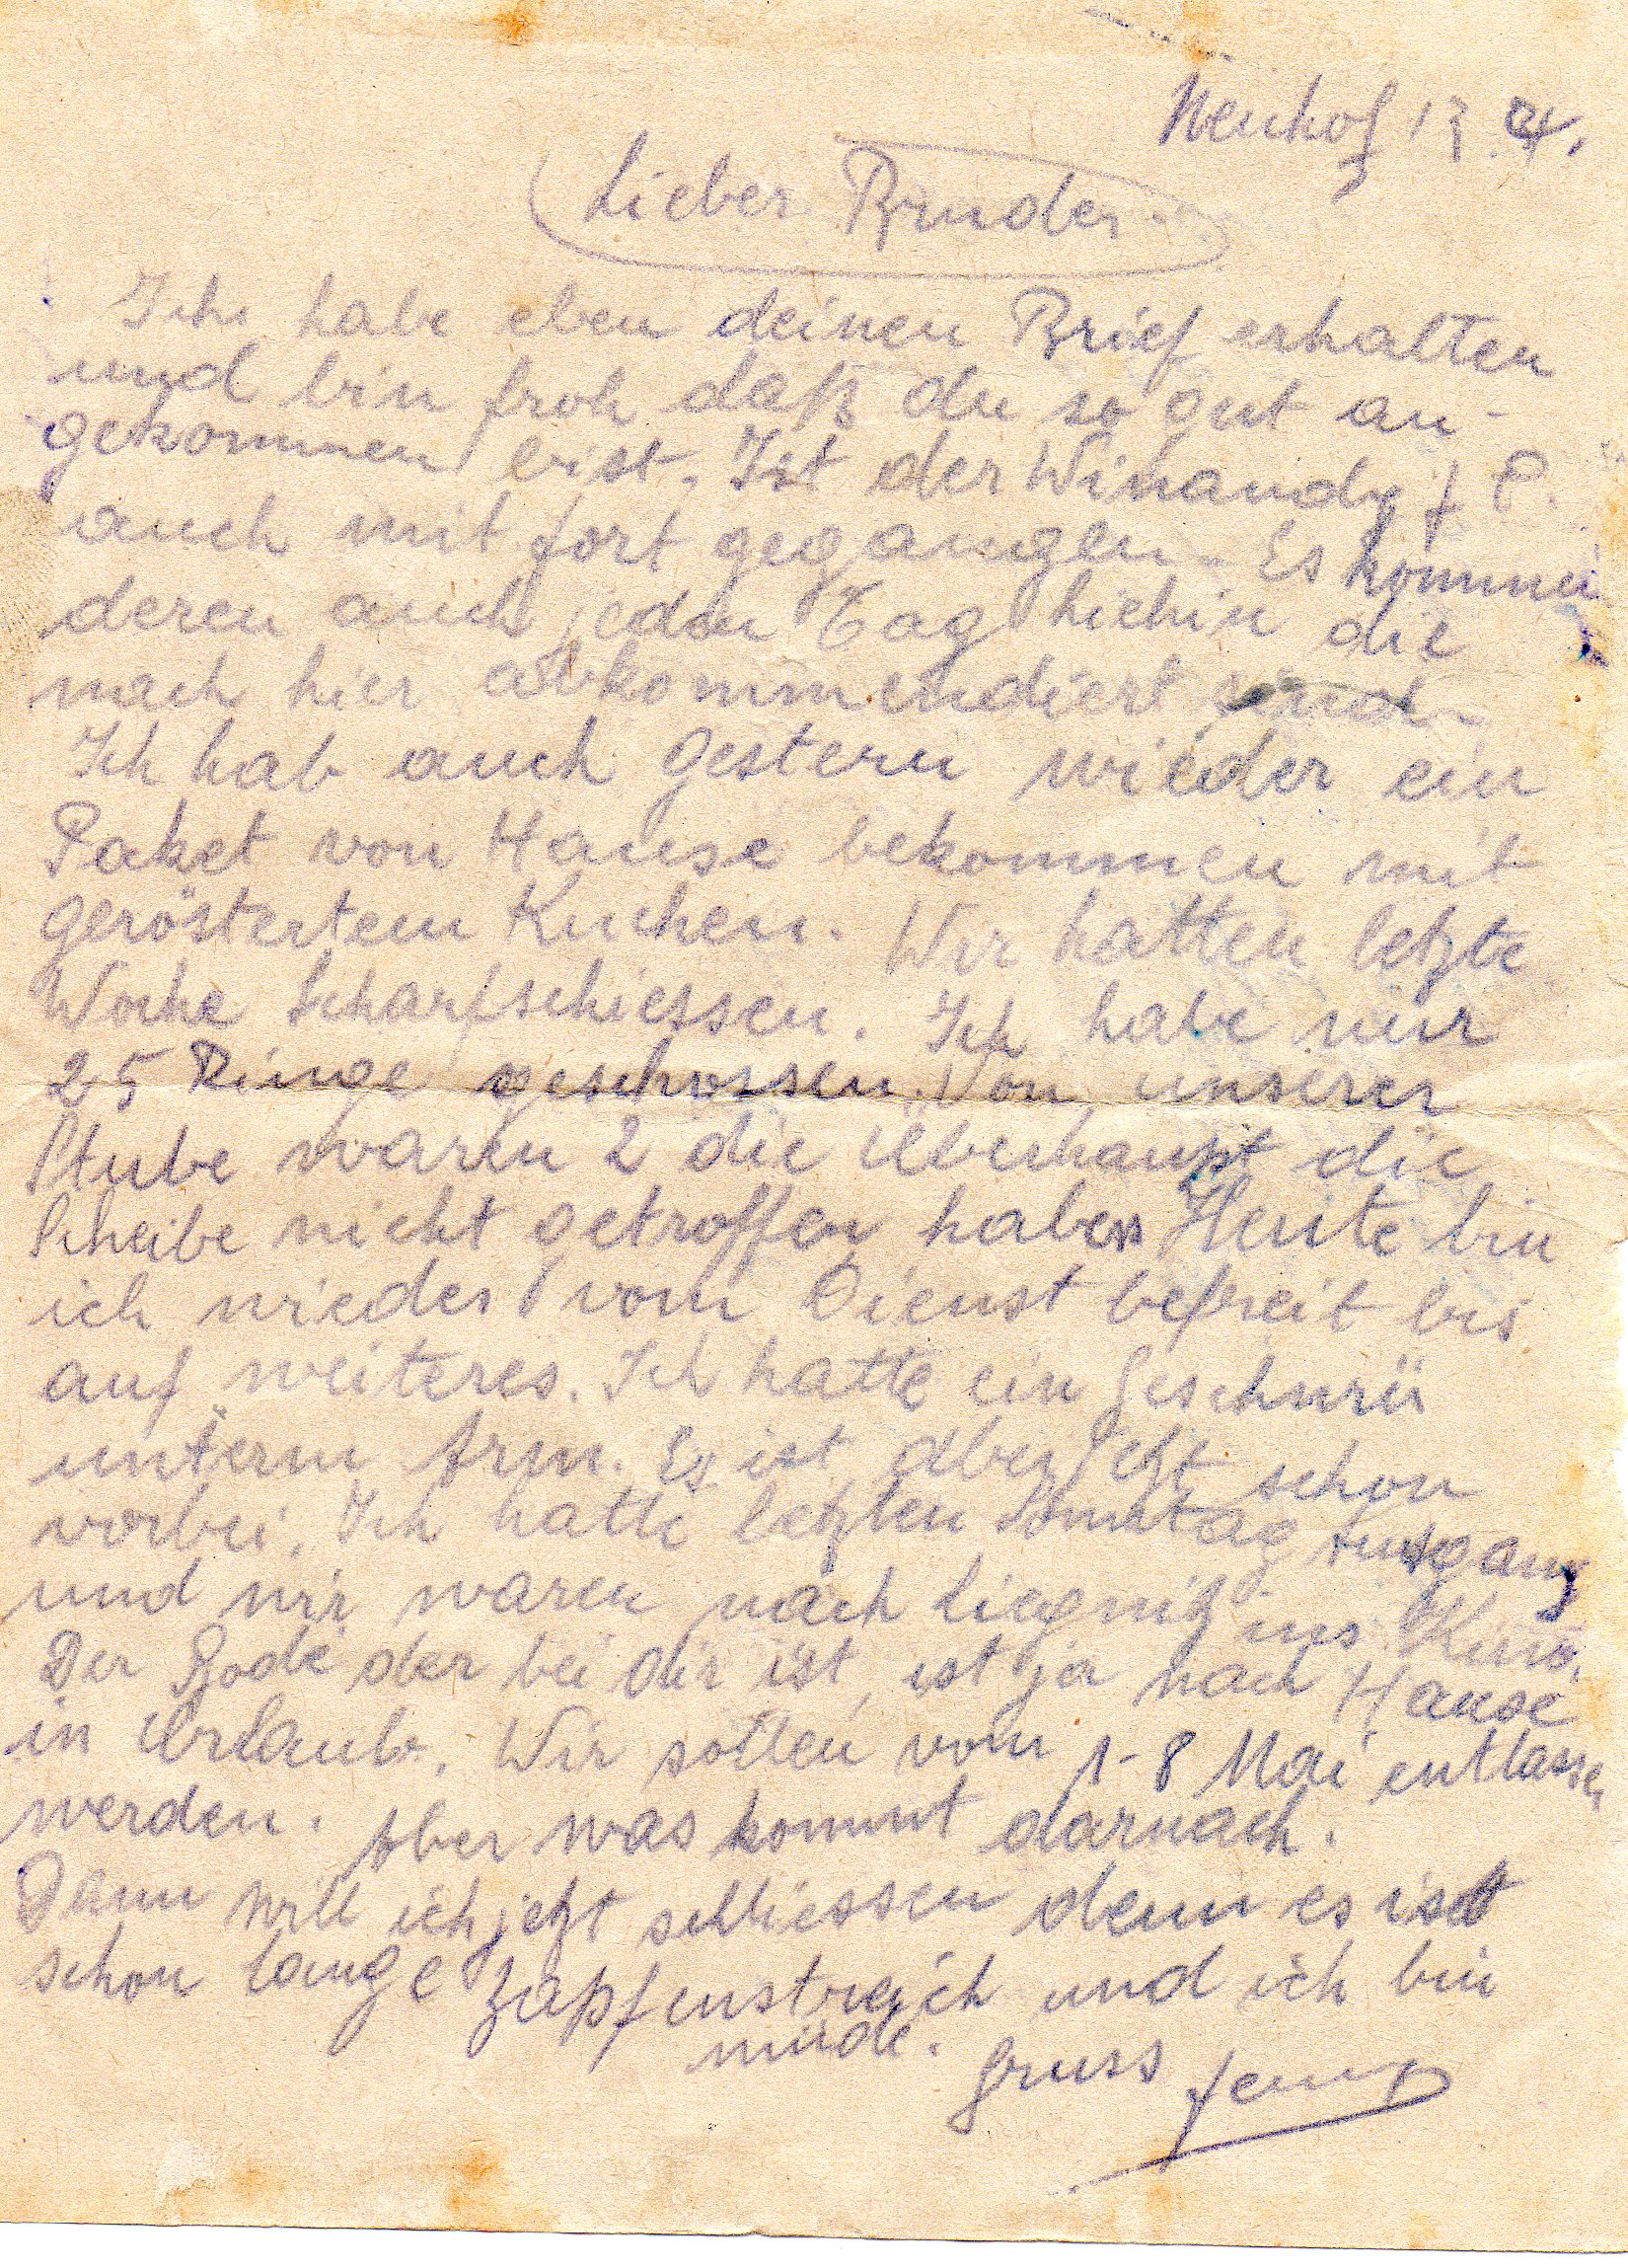 Neuhof 13.4.
Lieber Bruder.
Ich habe eben deinen Brief erhalten
und bin froh daß du so gut an-
gekommen bist. Ist der Winandy J P.
auch mit fort gegangen. Es kommen
deren auch jeden Tag hiehin die
nach hier abkommendiert sind.
Ich hab auch gestern wieder ein
Paket von Hause bekommen mit
geröstertem Kuchen. Wir hatten letzte
Woche Scharfschiessen. Ich habe nur
25 Ringe geschossen. Von unserer
Stube waren 2 die überhaupt die
Scheibe nicht getroffen haben Heute bin
ich wieder vom Dienst befreit bis
auf weiteres. Ich hatte ein Geschwür
unterm Arm. Es ist aber jetzt schon
vorbei. Ich hatte letzten Sonntag Ausgang
und wir waren nach Liegnitz ins Kino.
Der Bode der bei dir ist, ist ja nach Hause
in Urlaub. Wir sollen vom 1-8 Mai entlassen
werden. Aber was kommt darnach.
Dann will ich jetzt schliessen denn es ist
schon lange Zapfenstreich und ich bin
müde.
Gruss